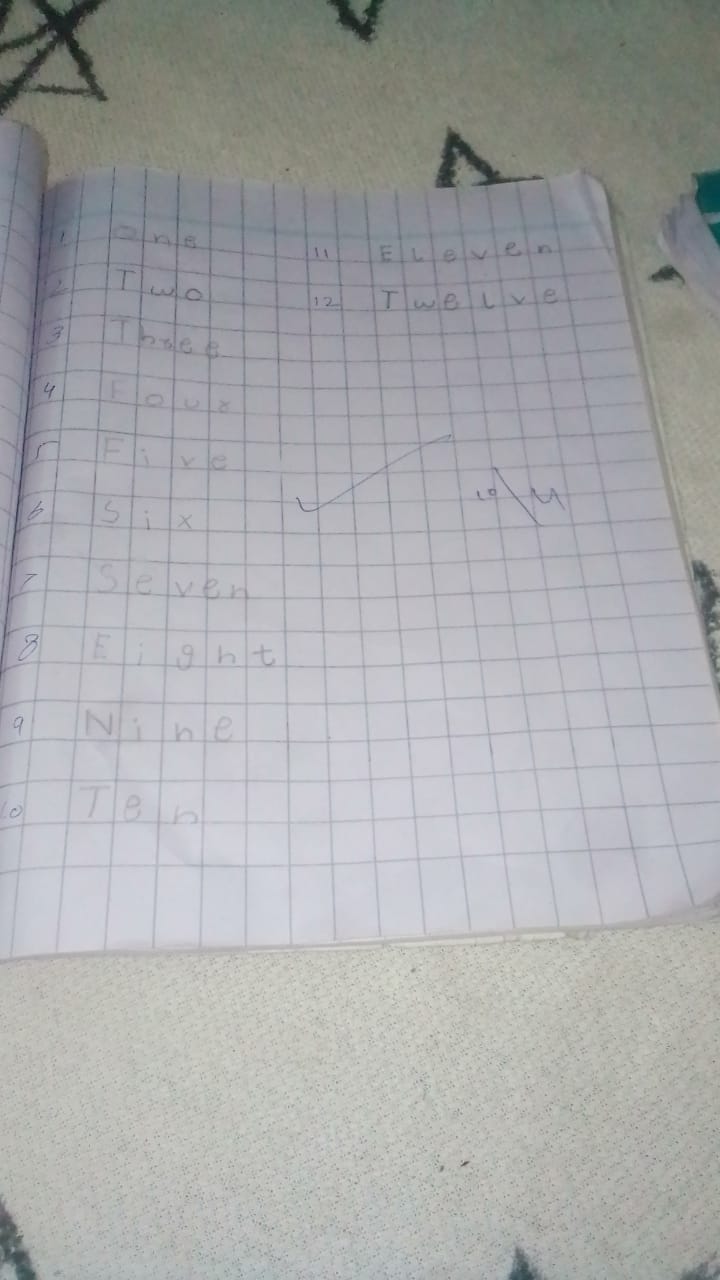 1 One
2 Two
3 Three
4 Four
5 Five
6 Six
7 Seven
8 Eight
9 Nine
10 Ten
11 ELeven
12 TweLve